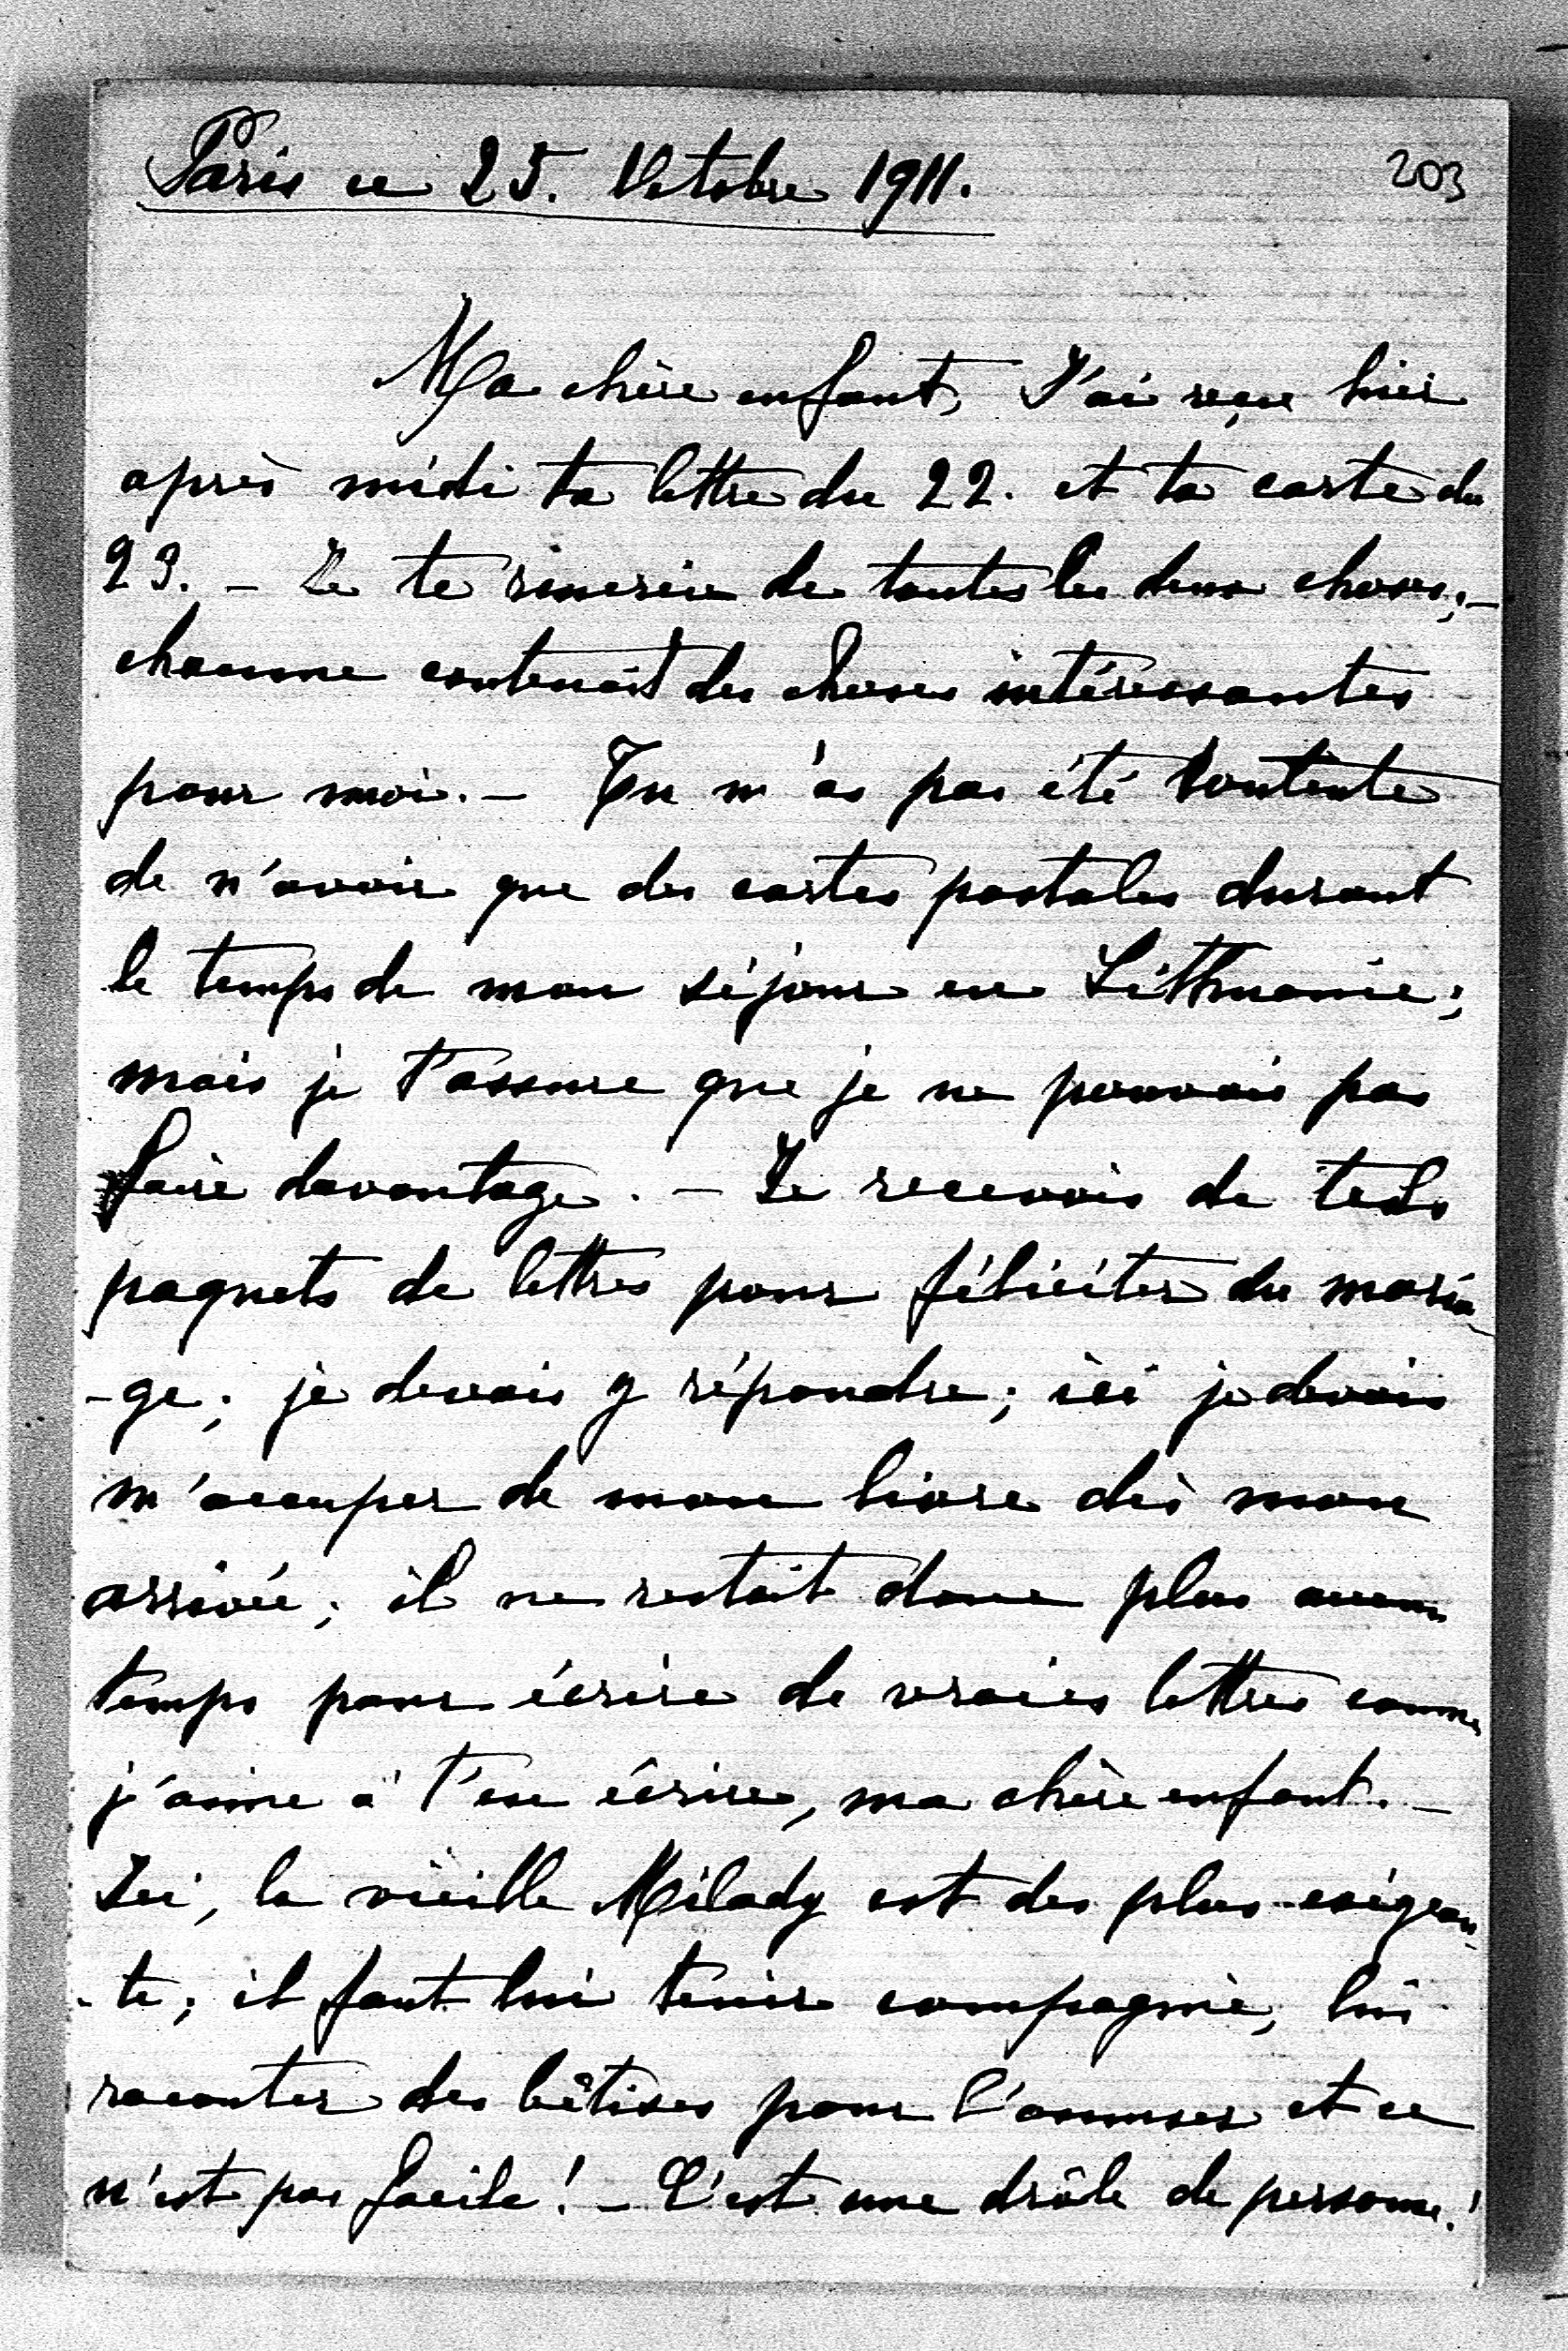 Paris ce 25. Octobre 1911.
203
Ma chère enfant, J'ai reçu hier
après midi ta lettre du 22. et ta carte du
23. – Je te remercie de toutes les deux choses; –
chacune contenait des choses intéressantes
pour moi. – Tu n'as pas été contente
de n'avoir que des cartes postales durant
le temps de mon séjour en Litthuanie;
mais je t'assure que je ne pouvais pas
faire davantage. – Je recevais de tels
paquets de lettres pour féliciter du maria-
-ge; je devais y répondre; ici je devais
m'occuper de mon livre dès mon
arrivée; il ne restait donc plus aucun
temps pour écrire de vraies lettres comme
j'aime à t'en écrire, ma chère enfant. –
Ici, la vieille Milady est des plus exigean-
-te; il faut lui tenir compagnie, lui
raconter des bêtises pour l'amuser et ce
n'est pas facile! – C'est une drôle de personne!